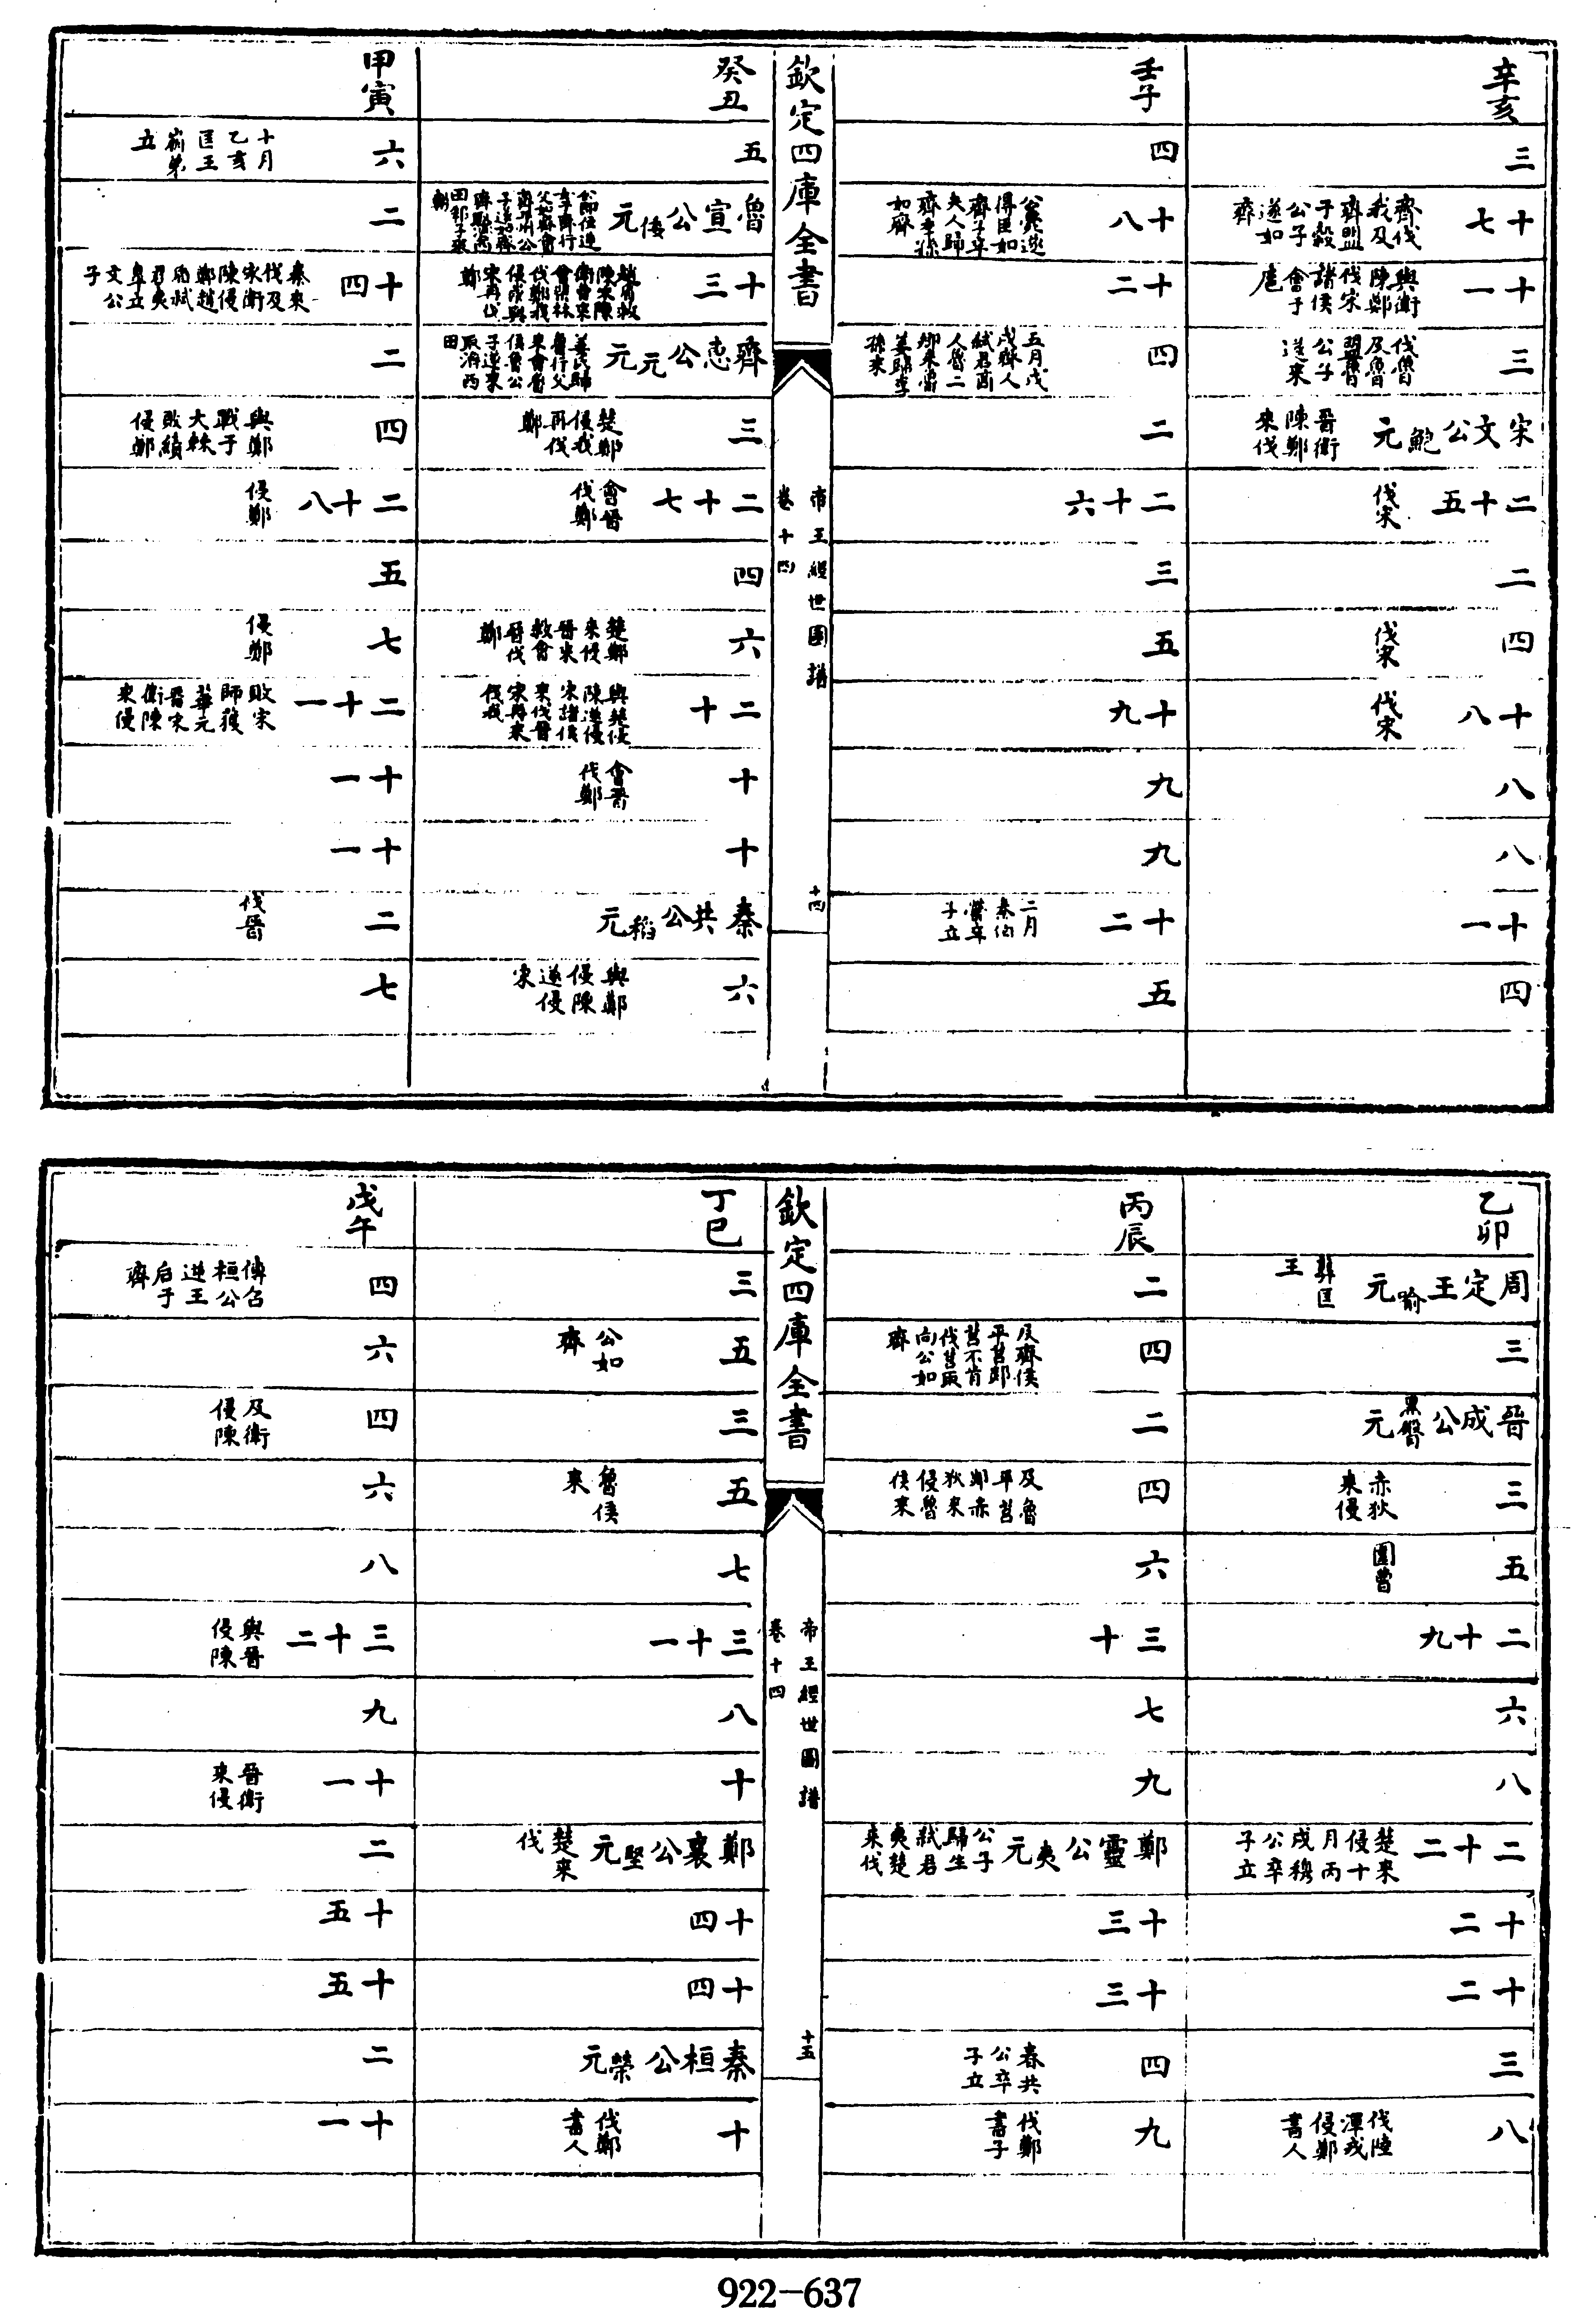 辛亥
三
十七 齊伐我及齊盟于穀公子遂如齊
十一 與衛陳鄭伐宋諸侯會于扈
三 伐魯及魯盟魯公子遂來
宋文公鮑元 晉衛陳鄭來伐
二十五 伐宋
二
四 伐宋
十八 伐宋
八
八
十一
四
壬子
四
十八 公薨遂得臣如齊子卒夫人歸齊季孫如齊
十二
四 五月戊戌齊人弒君商人魯二卿來魯姜歸季孫來
二
二十六
三
五
十九
九
九
十二 二月秦伯罃卒子立
五
欽定四庫全書
帝王經世圖譜
卷十四
十四
癸丑
五
魯宣公倭元 公即位遂
十三 趙盾救陳
齊惠公元元 姜氏歸魯行父來會魯侯魯公子遂來取濟西田
三 楚鄭侵我再伐鄭
二十七 會晉伐鄭
四
六 楚鄭來侵晉來救會晉伐鄭
二十 與楚侵陳遂侵宋諸侯來伐晉宋再來伐我
十 會晉伐鄭
十
秦共公稻元
六 與鄭侵陳遂侵宋
甲寅
六 十月乙亥匡王崩弟立
二
十四 秦來伐及宋衛陳侵鄭趙盾弒君夷皐立文公子
二
四 與鄭戰于大棘敗績侵鄭
二十八 侵鄭
五
七 侵鄭
二十一 敗宋師獲華元晉宋衛陳來侵
十一
十一
二 伐晉
七
乙卯
周定王喻元 葬匡王
三
晉成公黑臀元
三 赤狄來侵
五 圍曹
二十九
六
八
二十二 楚來侵十月丙戌穆公卒子立
十二
十二
三
八 伐陸渾戎侵鄭書人
丙辰
二
四 及齊侯平莒郯莒不肯伐莒取向公如齊
二
四 及魯平莒郯赤狄來侵魯侯來
六
三十
七
九
鄭靈公夷元 公子歸生弒君夷楚來伐
十三
十三
四 春共公卒子立
九 伐鄭書子
欽定四庫全書
帝王經世圖譜
卷十四
十五
丁巳
三
五 公如齊
三
五 魯侯來
七
三十一
八
十
鄭襄公堅元 楚來伐
十四
十四
秦桓公榮元
十 伐鄭書人
戊午
四 傳召桓公逆王后于齊
六
四 及衛侵陳
六
八
三十二 與晉侵陳
九
十一 晉衛來侵
二
十五
十五
二
十一
922-637